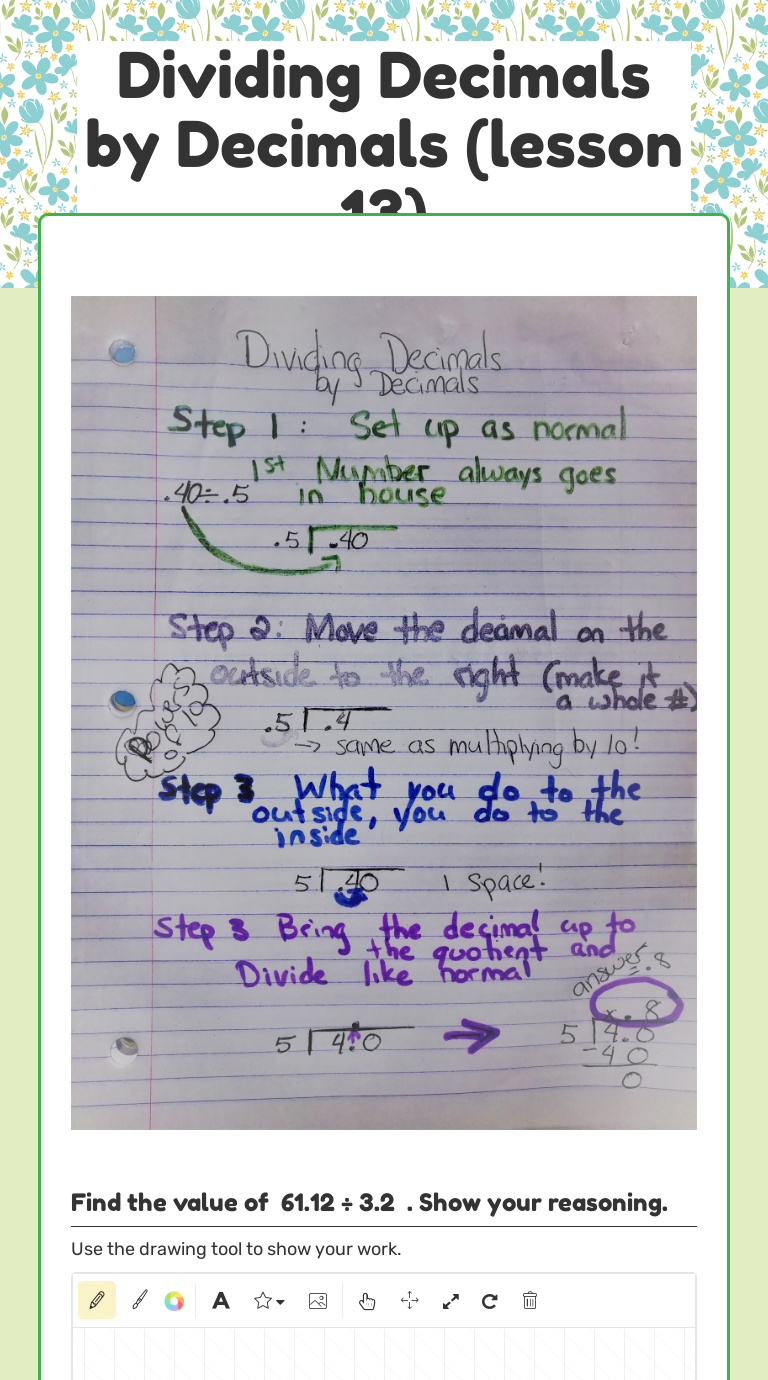 Dividing Decimals
by Decimals (lesson
13)
Dividing Decimals
by Decimals
Step 1 : Set up as normal
1st Number always goes
.40÷.5 in house
.5 .40
Step 2: Move the decimal on the
outside to the right (make it
a whole #)
Powers
of 10
.5 .4
→ same as multiplying by 10!
Step 3 What you do to the
outside, you do to the
inside
5 .40 1 space!
Step 3 Bring the decimal up to
the quotient and
Divide like normal
answer .8
x.8
5 4.0 → 5 4.0
-40
0
Find the value of 61.12 ÷ 3.2 . Show your reasoning.
Use the drawing tool to show your work.
A